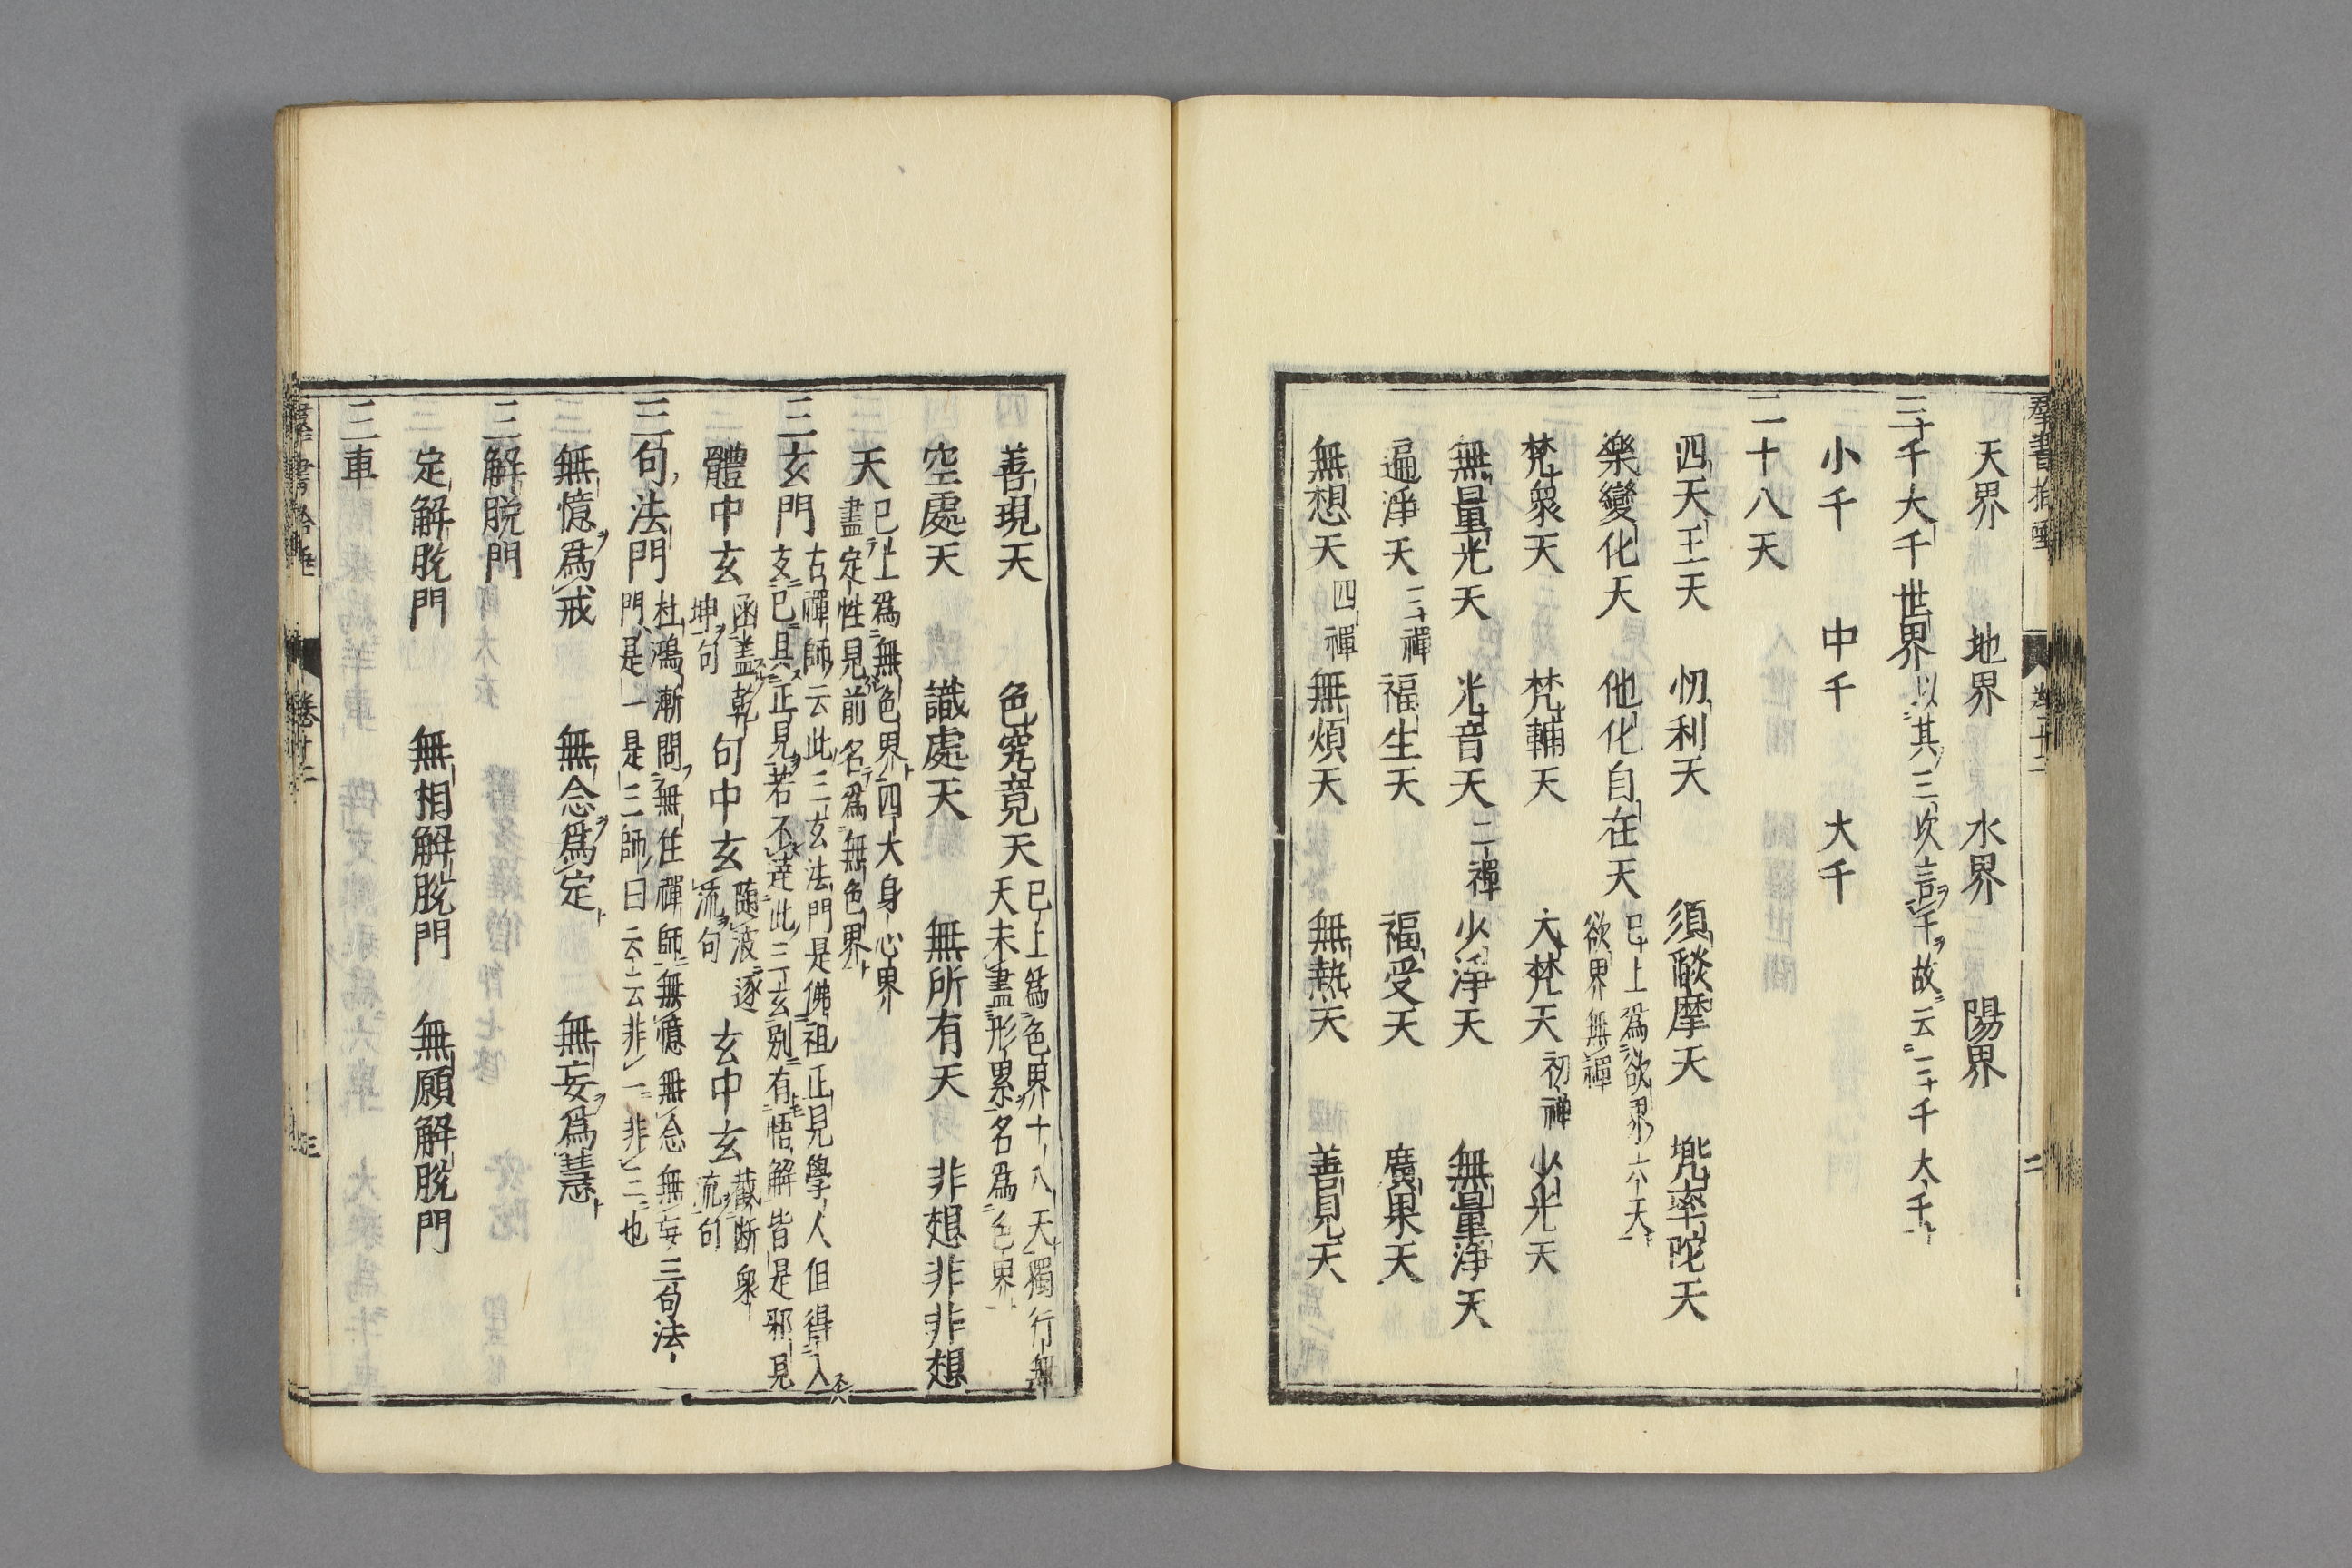 天界 地界 水界 陽界
三千大千世界 以其三次言千故云三千大千
小千 中千 大千
二十八天
四天王天 忉利天 須燄摩天 兜率陀天
樂變化天 他化自在天 已上爲欲界六天
欲界無禪
梵衆天 梵輔天 大梵天 初禅 少光天
無量光天 光音天 二禪 少淨天 無量淨天
遍淨天 三禪 福生天 福受天 廣果天
無想天 四禪 無煩天 無熱天 善見天
善現天 色究竟天 已上爲色界十八天獨行無
天未盡形累名爲色界
空處天 識處天 無所有天 非想非非想
天 已上爲無色界四大身心界
盡定性見前名爲無色界
三玄門 古禪師云此三玄法門是佛祖正見學人但得入
玄已具正見若不達此三玄別有悟解皆是邪見
體中玄 函盖乾
坤句 句中玄 隨波逐
流句 玄中玄 截断衆
流句
三句法門 杜鴻漸問無住禪師無憶無念無妄三句法
門是一是三師曰云云非一非三也
無憶爲戒 無念爲定 無妄爲慧
三解脱門
定解脱門 無相解脱門 無願解脱門
三車